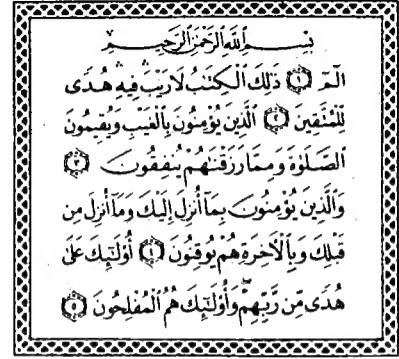 بِسْمِ ٱللَّهِ ٱلرَّحْمَٰنِ ٱلرَّحِيمِ
الٓمٓ ١ ذَٰلِكَ ٱلْكِتَٰبُ لَا رَيْبَ ۛ فِيهِ ۛ هُدًى
لِّلْمُتَّقِينَ ٢ ٱلَّذِينَ يُؤْمِنُونَ بِٱلْغَيْبِ وَيُقِيمُونَ
ٱلصَّلَوٰةَ وَمِمَّا رَزَقْنَٰهُمْ يُنفِقُونَ ٣
وَٱلَّذِينَ يُؤْمِنُونَ بِمَآ أُنزِلَ إِلَيْكَ وَمَآ أُنزِلَ مِن
قَبْلِكَ وَبِٱلْءَاخِرَةِ هُمْ يُوقِنُونَ ٤ أُو۟لَٰٓئِكَ عَلَىٰ
هُدًى مِّن رَّبِّهِمْ ۖ وَأُو۟لَٰٓئِكَ هُمُ ٱلْمُفْلِحُونَ ٥